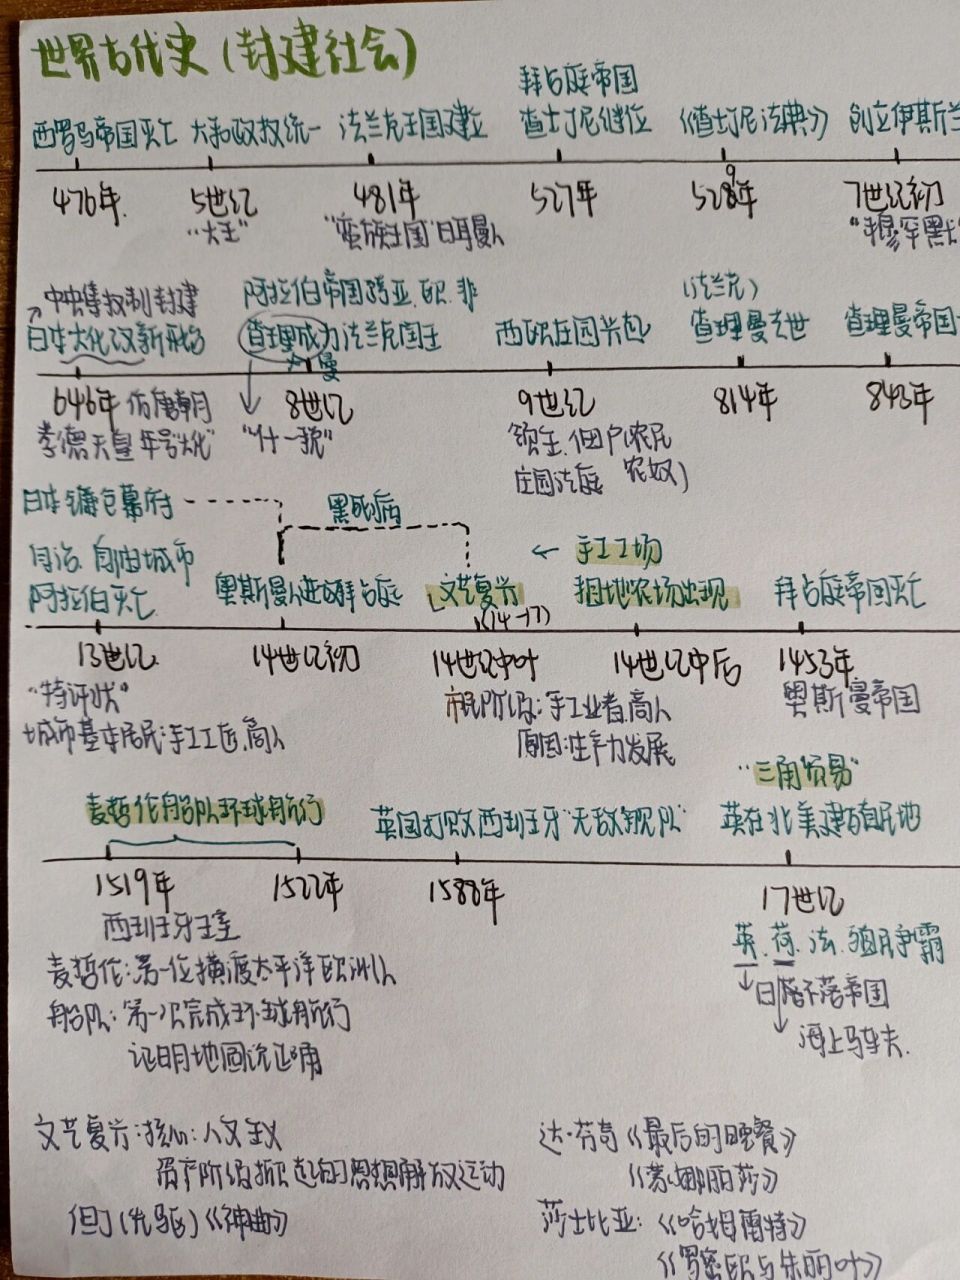 世界古代史（封建社会）
拜占庭帝国
西罗马帝国灭亡 大和政权统一 法兰克王国建立 查士丁尼继位 《查士丁尼法典》 创立伊斯兰
476年 5世纪 481年 527年 528年 7世纪初
9
“大王” “蛮族王国”日耳曼人 “穆罕默
中央集权制封建 阿拉伯帝国跨亚、欧、非 （法兰克）
日本大化改新开始 查理成为法兰克国王 西欧庄园兴起 查理曼去世 查理曼帝国
曼
646年 仿唐朝 8世纪 9世纪 814年 843年
孝德天皇 年号“大化” “什一税” 领主、佃户（农民
庄园法庭 农奴）
日本镰仓幕府 黑死病
自治、自由城市 ← 手工工场
阿拉伯灭亡 奥斯曼人进攻拜占庭 文艺复兴 租地农场出现 拜占庭帝国灭亡
（14-17）
13世纪 14世纪初 14世纪中叶 14世纪中后 1453年
“特许状” 市民阶级：手工业者、商人 奥斯曼帝国
城市基本居民：手工工匠、商人 原因：生产力发展
“三角贸易”
麦哲伦船队环球航行 英国打败西班牙“无敌舰队” 英在北美建殖民地
1519年 1522年 1588年 17世纪
西班牙王室 英、荷、法、殖民争霸
麦哲伦：第一位横渡太平洋欧洲人 日不落帝国
船队：第一次完成环球航行 海上马车夫
证明地圆说正确
文艺复兴：核心：人文主义 达·芬奇《最后的晚餐》
资产阶级掀起的思想解放运动 《蒙娜丽莎》
但丁（先驱）《神曲》 莎士比亚：《哈姆雷特》
《罗密欧与朱丽叶》